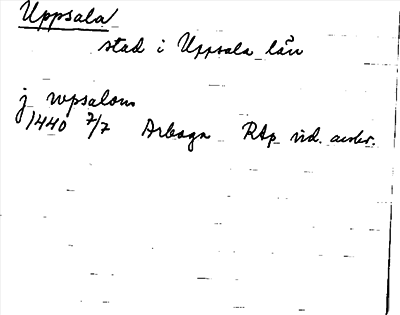 Uppsala
stad i Uppsala län
j wpsalom
1440 7/7 Arboga RAp vid. avskr.